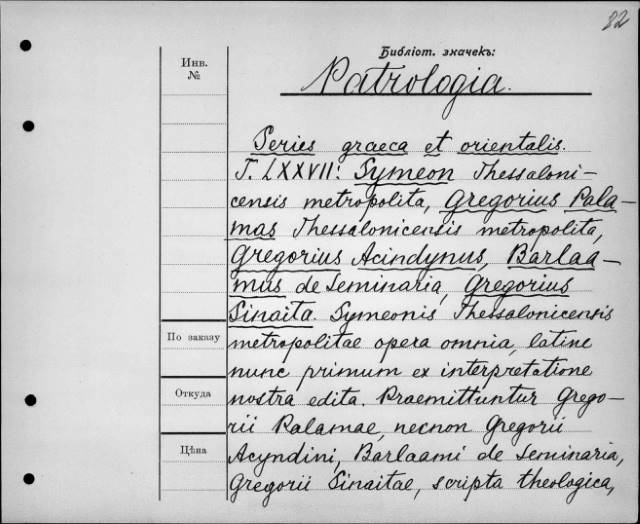 82
Библіот. значекъ:
Инв.
№
Patrologia.
Series graeca et orientalis.
T. LXXVII: Symeon Thessaloni-
censis metropolita, Gregorius Pala-
mas Thessalonicensis metropolita,
Gregorius Acindynus, Barlaa-
mus de Seminaria, Gregorius
Sinaita. Symeonis Thessalonicensis
По заказу
metropolitae opera omnia, latine
nunc primum ex interpretatione
Откуда
nostra edita. Praemittuntur Grego-
rii Palamae, necnon Gregorii
Цѣна
Acyndini, Barlaami de Seminaria,
Gregorii Sinaitae, scripta theologica,